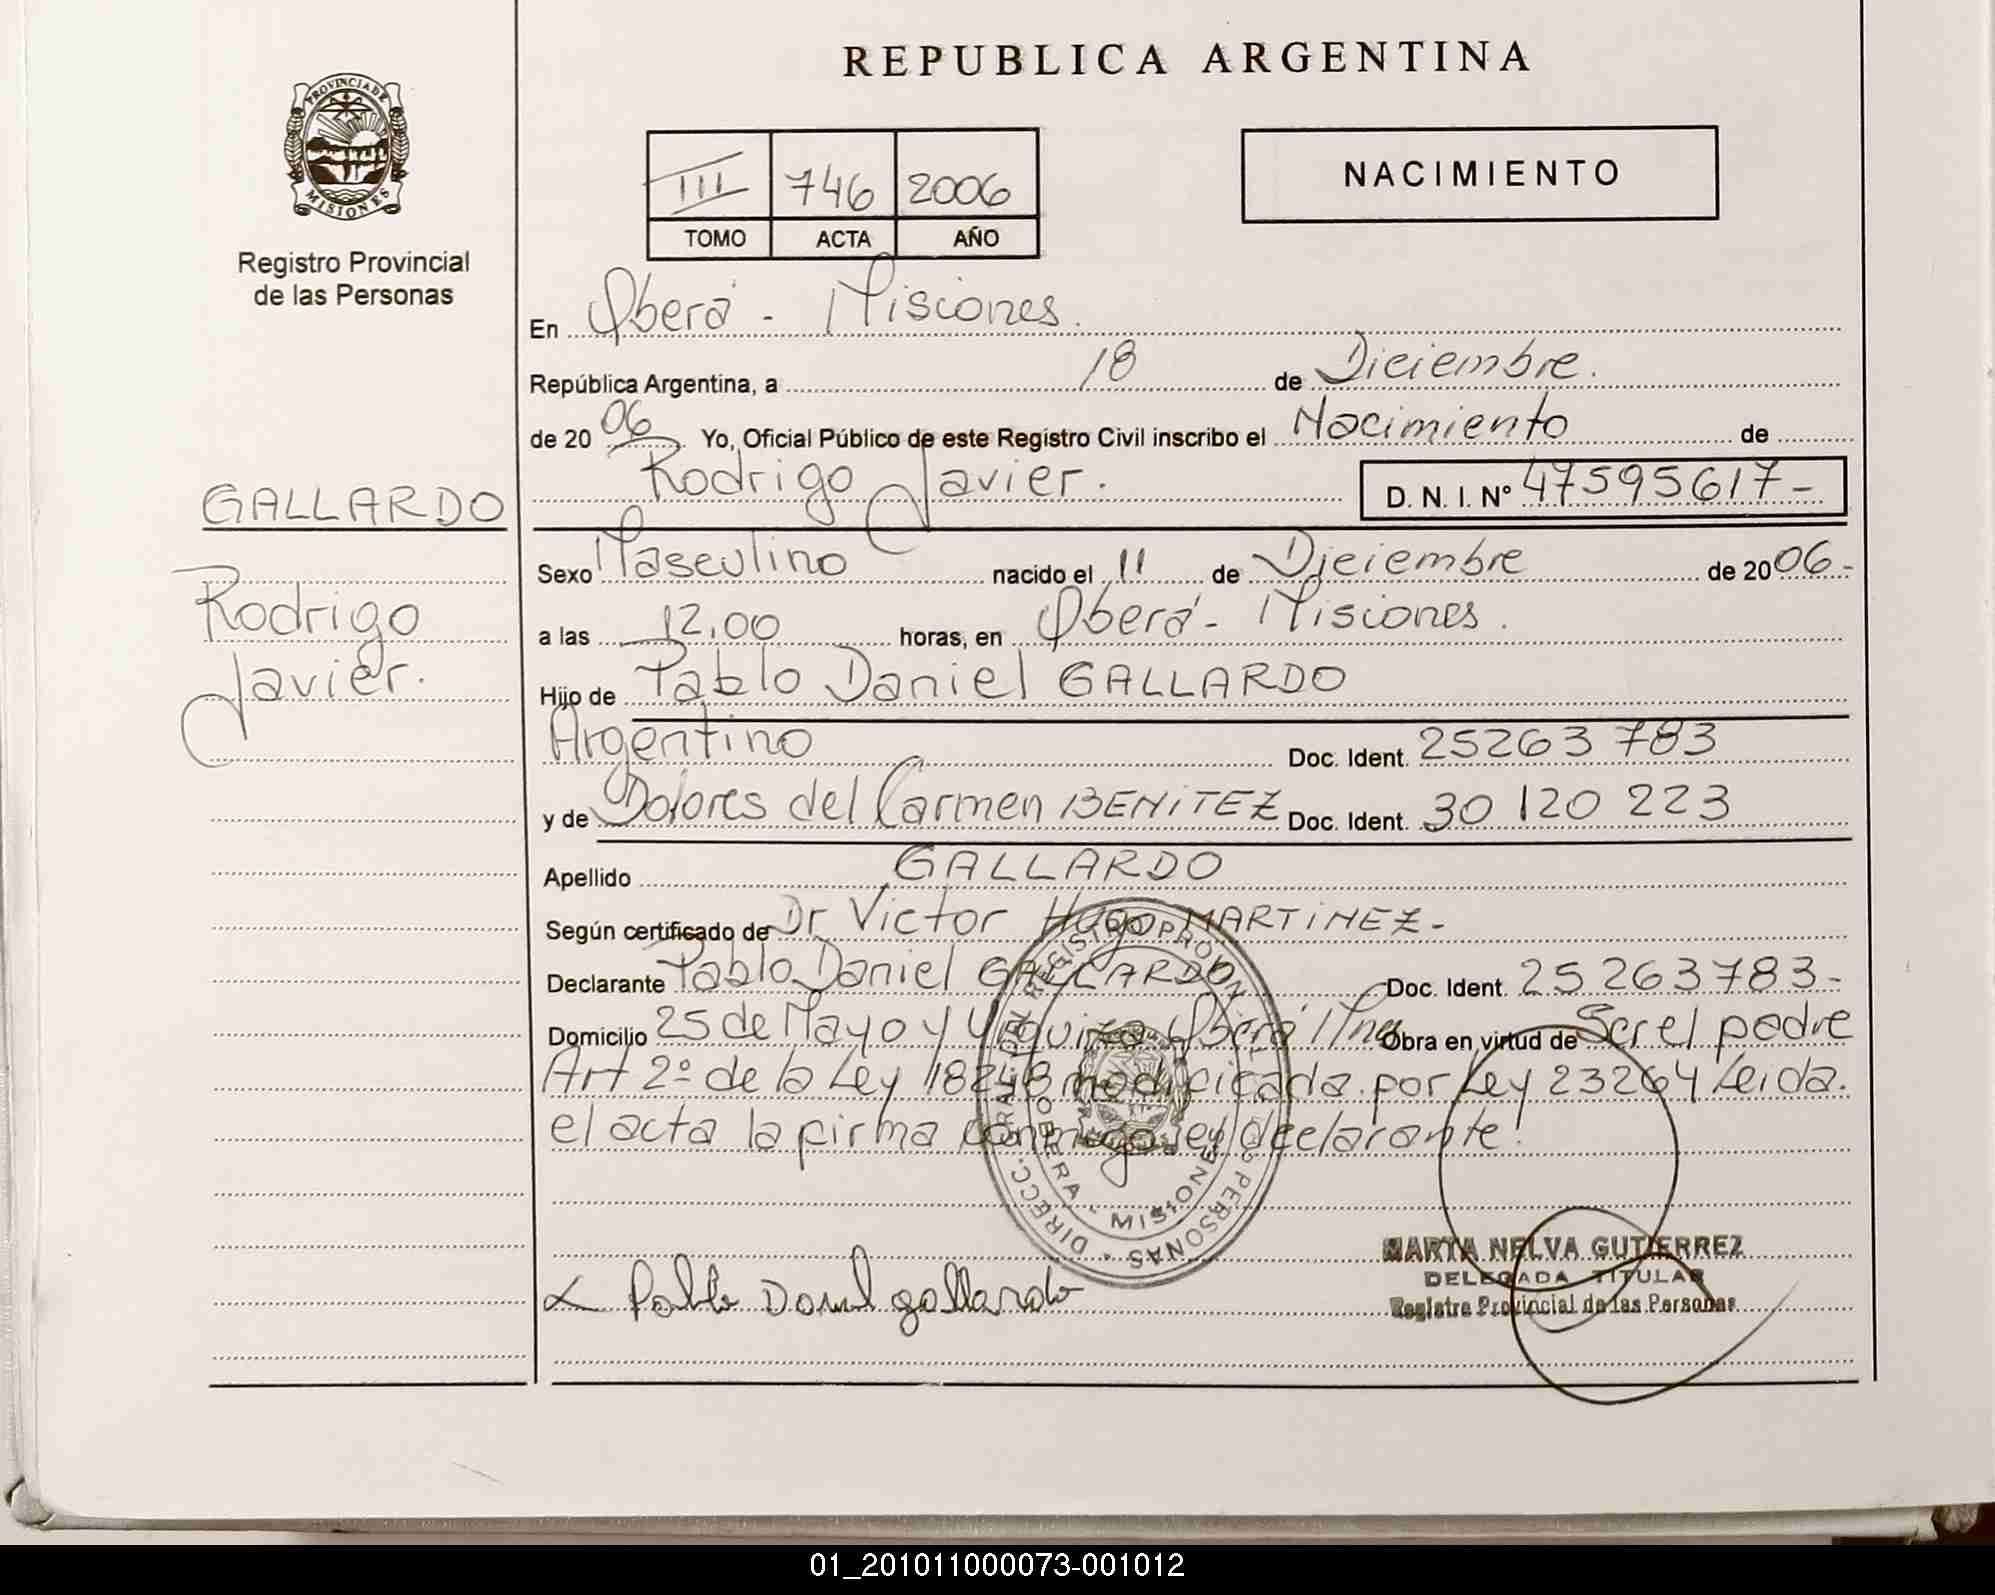 REPUBLICA ARGENTINA
PROVINCIA DE
MISIONES
Registro Provincial
de las Personas
III 746 2006
TOMO ACTA AÑO
NACIMIENTO
En Oberá - Misiones.
República Argentina, a 18 de Diciembre.
de 20 06 Yo, Oficial Público de este Registro Civil inscribo el Nacimiento de
Rodrigo Javier. D. N. I. Nº 47595617-
GALLARDO
Rodrigo
Javier.
Sexo Masculino nacido el 11 de Diciembre de 20 06-
a las 12,00 horas, en Oberá - Misiones.
Hijo de Pablo Daniel GALLARDO
Argentino Doc. Ident. 25263 783
y de Dolores del Carmen BENITEZ Doc. Ident. 30 120 223
Apellido GALLARDO
Según certificado de Dr Victor Hugo MARTINEZ-
Declarante Pablo Daniel GALLARDO Doc. Ident. 25 263783-
Domicilio 25 de Mayo y Oberá Mnes Obra en virtud de Ser el padre
Art 2º de la Ley 18248 modificada por Ley 23264 Leida.
el acta la firma conmigo el declarante.
DIRECC. GRAL. DEL REGISTRO PROV. DE LAS PERSONAS
OBERA - MISIONES
Pablo Daniel gallardo
MARTA NELVA GUTIERREZ
DELEGADA TITULAR
Registro Provincial de las Personas
01_201011000073-001012